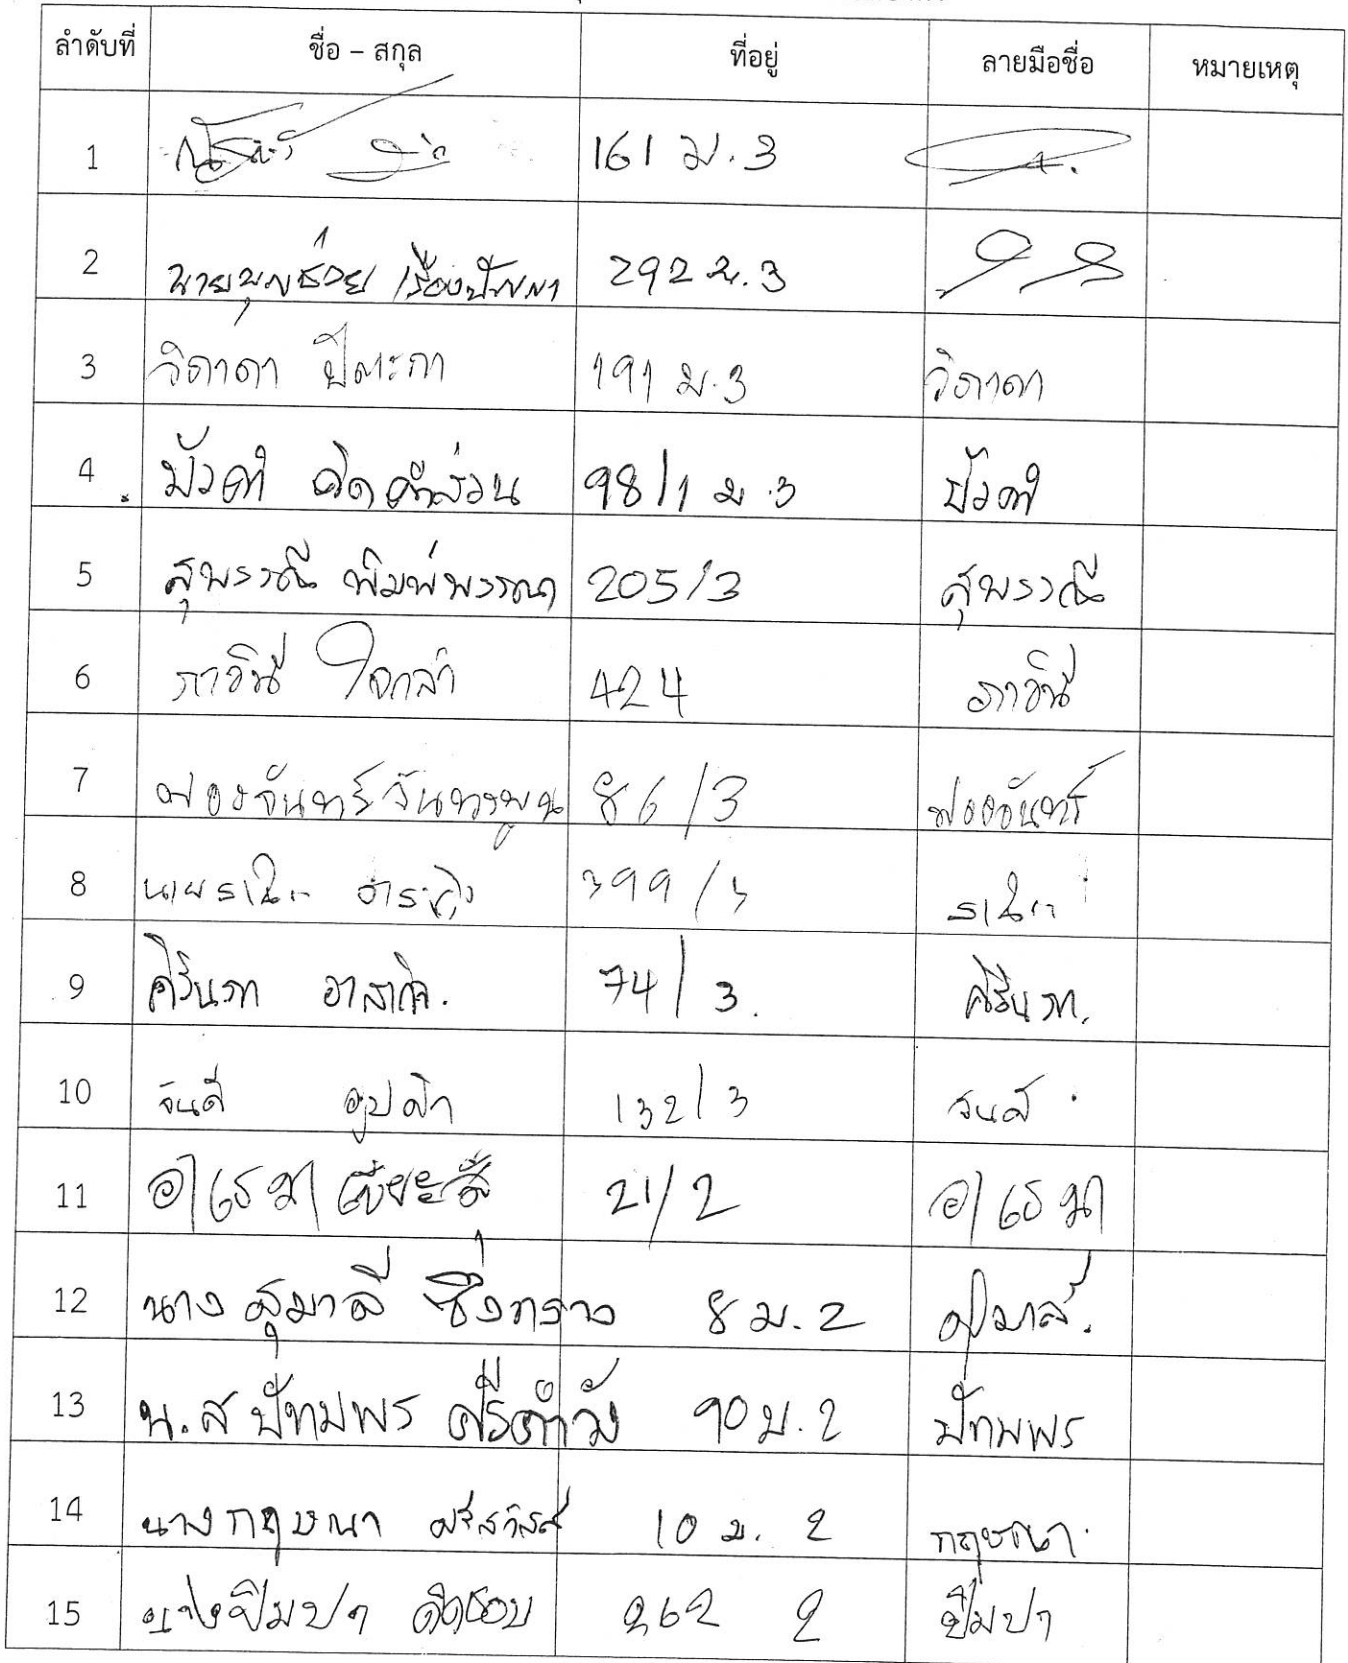 ลำดับที่ ชื่อ – สกุล ที่อยู่ ลายมือชื่อ หมายเหตุ
1 161 ม.3
2 นายบุญช่วย เรืองปัญญา 292 ม.3
3 วิภาดา ปิตะกา 191 ม.3 วิภาดา
4 บัวคำ คิดคำส่วน 98/1 ม.3 บัวคำ
5 สุพรรณี พิมพ์พวรรณา 205/3 สุพรรณี
6 ภาวินี ใจกล้า 424 ภาวินี
7 ฟองจันทร์ จันทรพูน 86/3 ฟองจันทร์
8 นาย 399/3
9 ศิรินภา 74/3. ศิรินภา.
10 จันดี 132/3 จันดี
11 21/2
12 นาง สุมาลี ซึ่งกราง 8 ม.2 สุมาลี.
13 น.ส ปัทมพร ศรีคำวัง 90 ม.2 ปัทมพร
14 นางกฤษณา ศรีสวัสดิ์ 10 ม. 2 กฤษณา
15 นางปิมปา คิดชอบ 262 2 ปิมปา